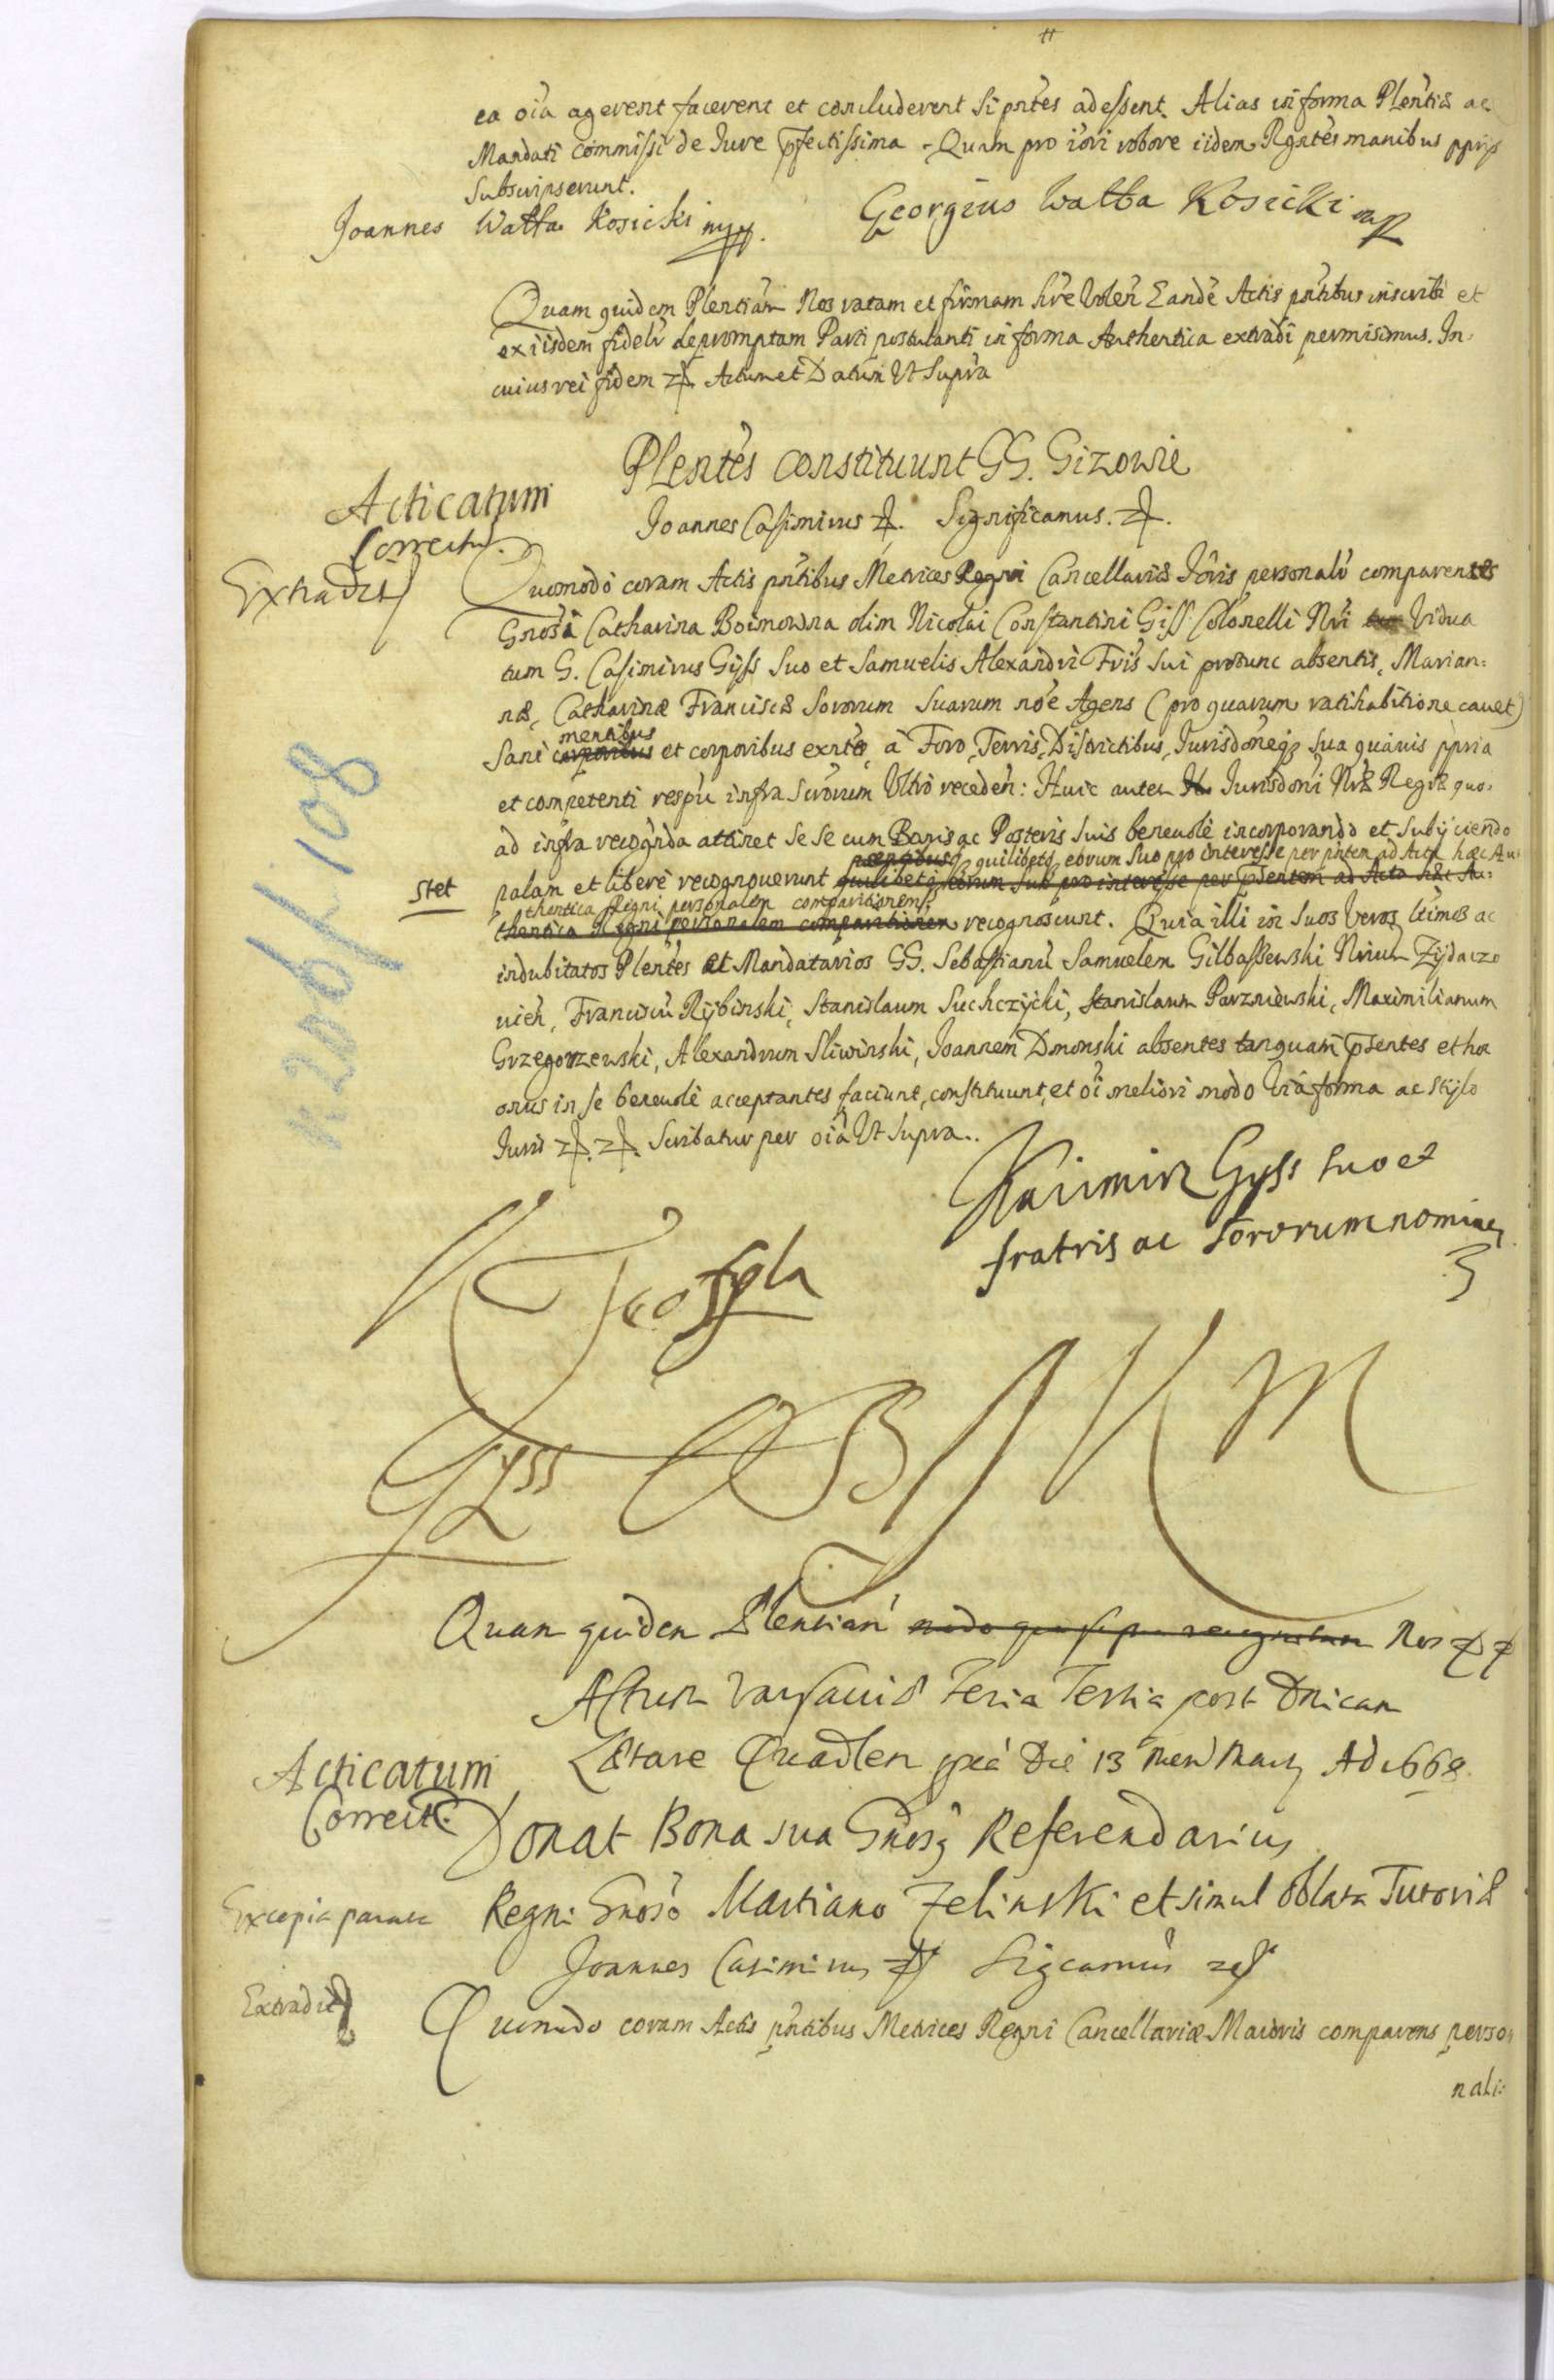 ea oia agerent facerent et concluderent si pntes adessent. Alias in forma Plentiæ ac
Mandati commissi de Iure pfectissima. Quam pro iori robore iidem Rgntes manibus pprijs
Subscripserunt.
Joannes Watta Kosicki mpp.
Georgius Watta Kosicki mp
Quam quidem Plentiam Nos ratam et firmam hre Volen Eandē Actis pntibus inscribi et
ex iisdem fideli depromptam Parti postulanti in forma Authentica extradi permisimus. In
cuius rei fidem Actum et Datum Ut Supra
Plentes constituunt GG. Gizowie
Acticatum
Joannes Casimirus Significamus.
Correctum.
Extradit
Quomodo coram Actis pntibus Metrices Regni Cancellariæ Ioris personalr comparentes
Gnosa Catharina Boimowna olim Nicolai Constantini Giss Colonelli Nri Vidua
tum G. Casimirus Gijss suo et Samuelis Alexandri Fris sui pronunc absentis, Marian:
næ, Catharinæ Franciscæ Sororum Suarum noe Agens (pro quarum ratihabitione cauet)
mentibus
Sani corporibus et corporibus exntes, à Foro, Terris, Districtibus, Jurisdonēq; sua quauis ppria
et competenti respū infra scrorum Ultrò recedeñ: Huic autem Jurisdoni Nræ Regiæ quo:
ad infra recognda attinet se se cum Bonis ac Posteris suis beneuolè incorporando et subijciendo
quilibetq eorum Suo pro interesse per pntem ad Acta hæc Au:
Stet
palam et liberè recognouerunt quilibetq eorum suo pro interesse per psentem ad Acta hæc Au:
thentica Regni personalem comparitionem
thentica Regni personalem comparitionem recognoscunt. Quia illi in suos Veros ltimos ac
indubitatos Plentes et Mandatarios GG. Sebastianū Samuelem Gilbaszewski Nrium Zijdaczo
uien, Franciscū Rijbinski, Stanislaum Suchczijcki, Stanislaum Parzniewski, Maximilianum
Grzegorzewski, Alexandrum Sliwinski, Joannem Dmonski absentes tanquam psentes et hoc
onus in se beneuolè acceptantes faciunt, constituunt, et oi meliori modo Via forma ac Stijlo
Juris Scribatur per oia Ut Supra.
Kazimirz Gyss suo et
fratris ac Sororum nomine
Gyss
K B J K M
Quam quidem Plentian Nos
Actum Varsauiæ Feria Tertia post Dnicam
Lætare Quadlem pxa Die 13 Men Martij Ad 1668
Acticatum
Correct.
Donat Bona sua Gnosus Referendarius
Ex copia parata
Regni Gnoso Martiano Zelinski et simul oblata Tutoriæ
Joannes Casimirus Sigcamus
Extradit
Quomodo coram Actis pntibus Metrices Regni Cancellariæ Maioris comparens perso
nali: